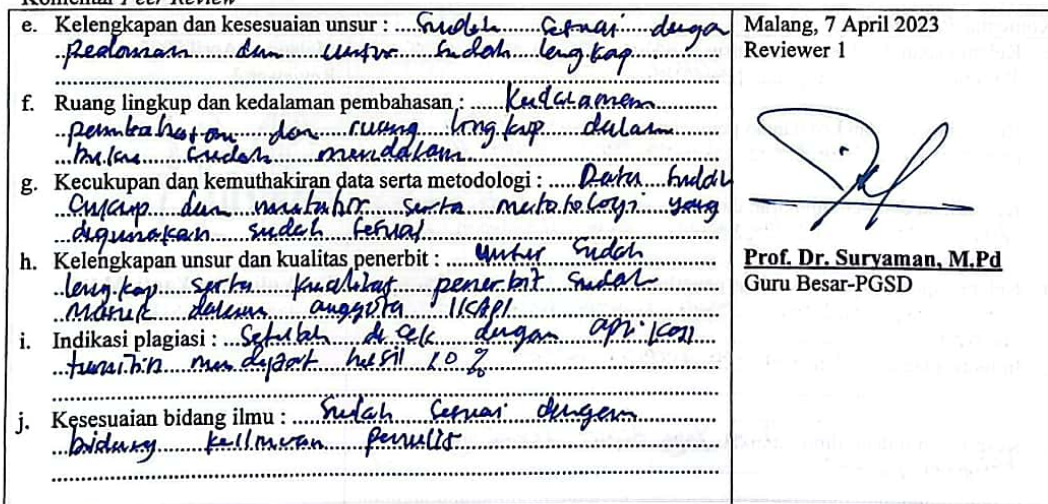 Komentar Peer Review
e. Kelengkapan dan kesesuaian unsur : Sudah Sesuai dengan
Pedoman dan unsur Sudah lengkap
f. Ruang lingkup dan kedalaman pembahasan : Kedalaman
pembahasan dan ruang lingkup dalam
buku Sudah mendalam
g. Kecukupan dan kemuthakiran data serta metodologi : Data Sudah
Cukup dan mutahir serta metotologi yang
digunakan sudah sesuai
h. Kelengkapan unsur dan kualitas penerbit : Unsur Sudah
lengkap serta kualitas penerbit Sudah
Masuk dalam anggota IKAPI
i. Indikasi plagiasi : Setelah di cek dengan aplikasi
turnitin mendapat hasil 10 %
j. Kesesuaian bidang ilmu : Sudah Sesuai dengan
bidang keilmuan penulis
Malang, 7 April 2023
Reviewer 1
Prof. Dr. Suryaman, M.Pd
Guru Besar-PGSD